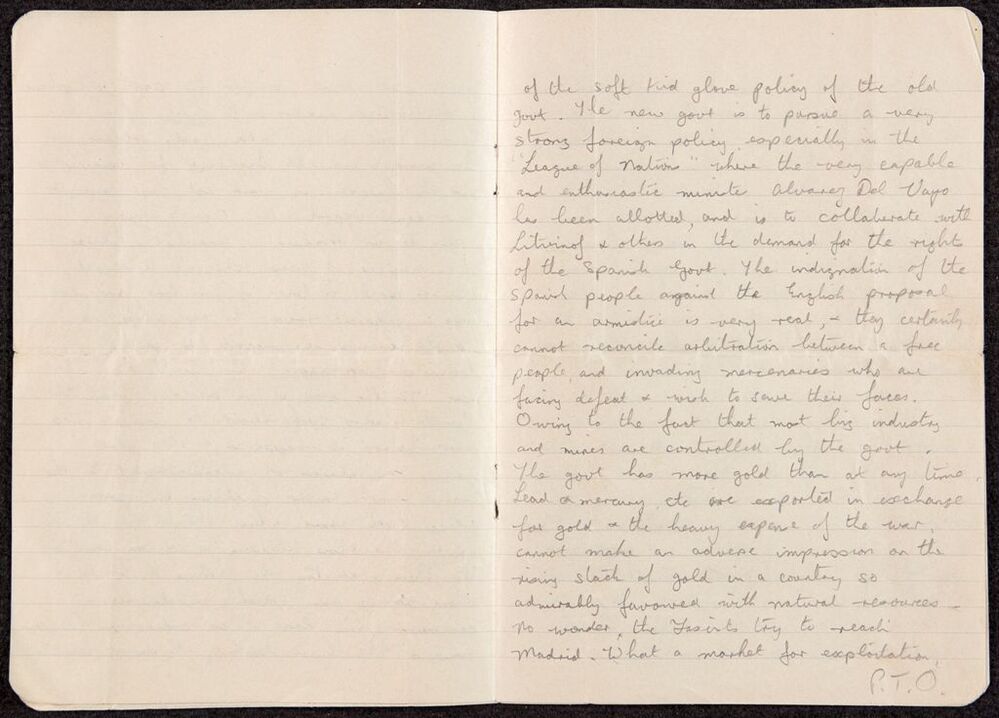 of the soft kid glove policy of the old
Govt. The new govt is to pursue a very
strong foreign policy, especially in the
"League of Nations" where the very capable
and enthusiastic minister Alvarez Del Vayo
has been allotted, and is to collaberate with
Litvinof & others in the demand for the rights
of the Spanish Govt. The indignation of the
Spanish people against the English proposal
for an armistice is very real, & they certainly
cannot reconcile arbitration between a free
people, and invading mercenaries who are
facing defeat & wish to save their faces.
Owing to the fact that most big industry
and mines are controlled by the govt.
The govt has more gold than at any time.
Lead & mercury, etc are exported in exchange
for gold & the heavy expense of the war,
cannot make an adverse impression on the
rising stack of gold in a country so
admirably favoured with natural resources -
No wonder, the Fascists try to reach
Madrid. What a market for exploitation.
P.T.O.